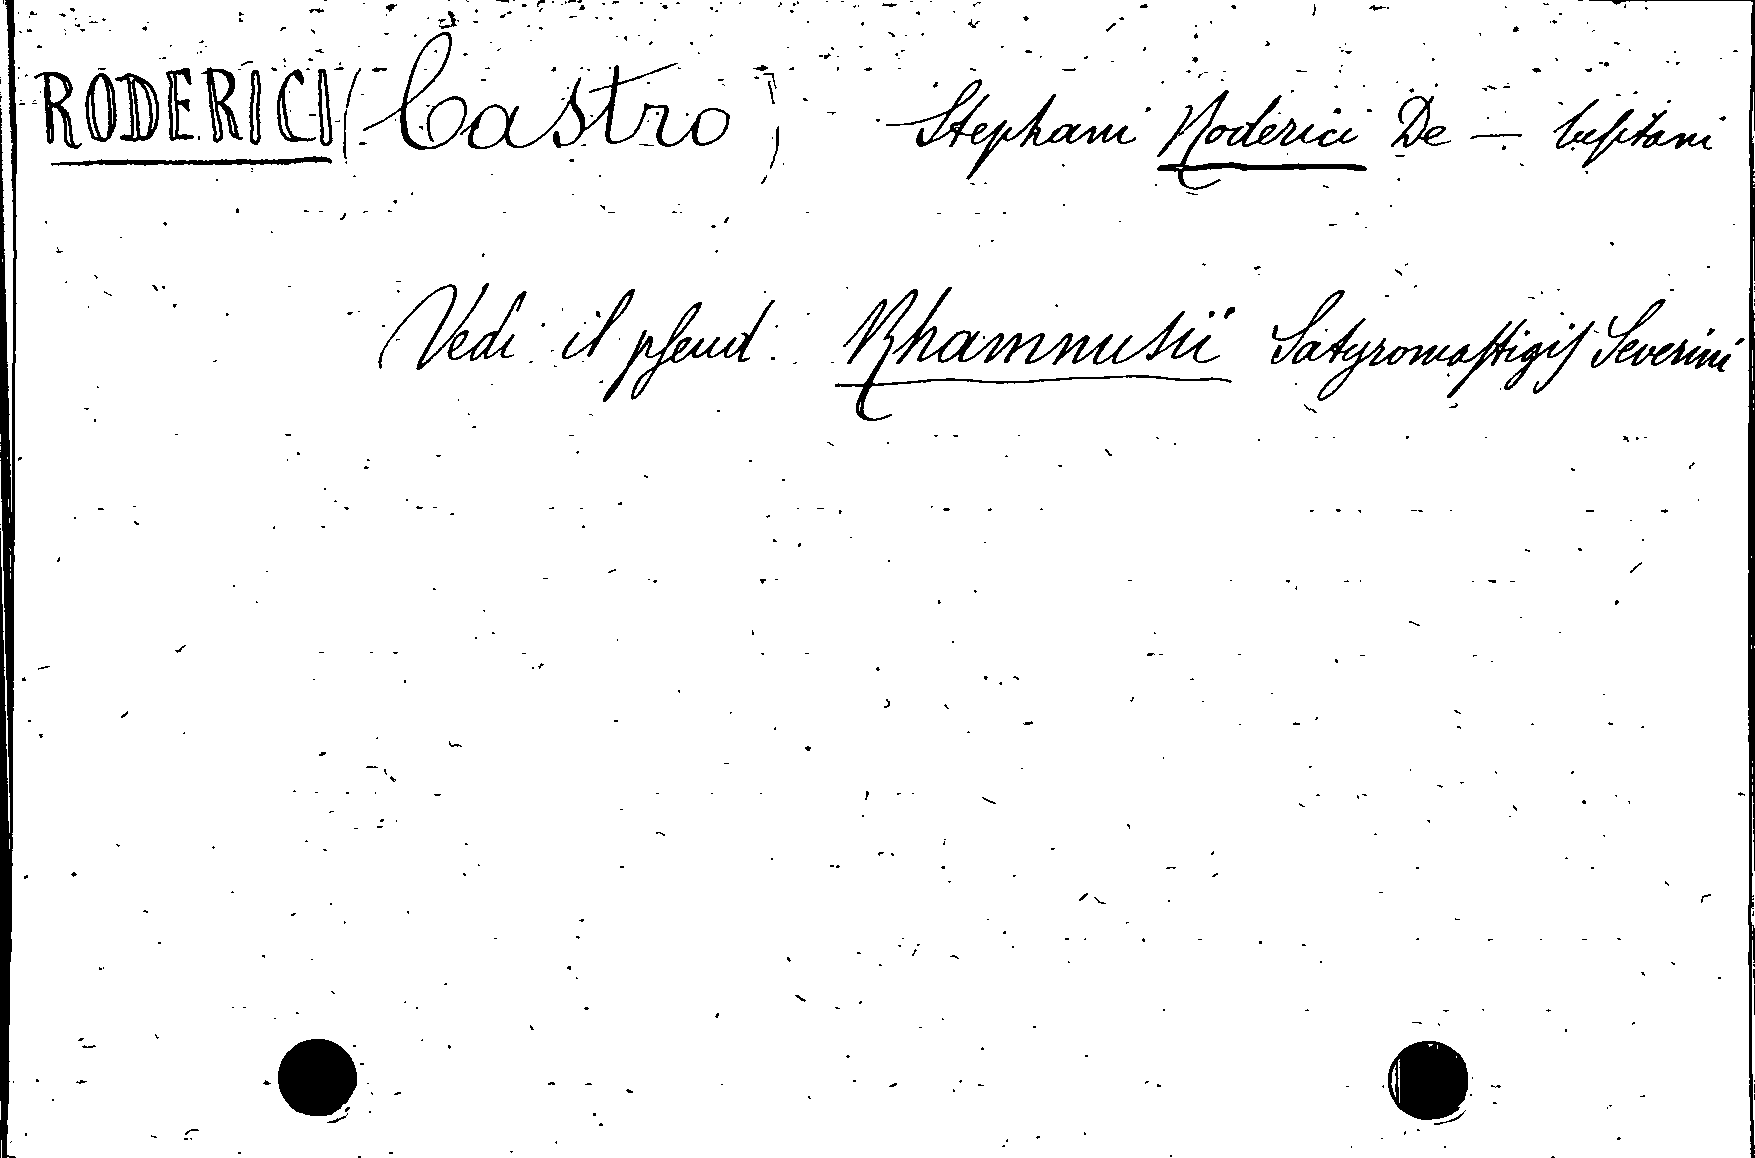 RODERICI (Castro) Stephani Roderici De — lusitani
Vedi il pseud. Rhamnusii Satyromastigis Severini